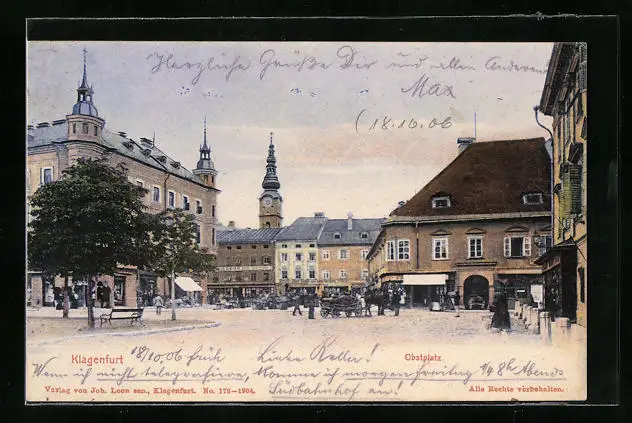 Herzliche Grüße Dir und allen Anderen
Max
(18.10.06
Klagenfurt
18/10 06 früh
Liebe Keller!
Obstplatz
Wenn ich nicht telegrafiere, komme ich morgen Freitag 1/4 8h Abends
Südbahnhof an!
Verlag von Joh. Leon sen., Klagenfurt. No. 178-1904.
Alle Rechte vorbehalten.